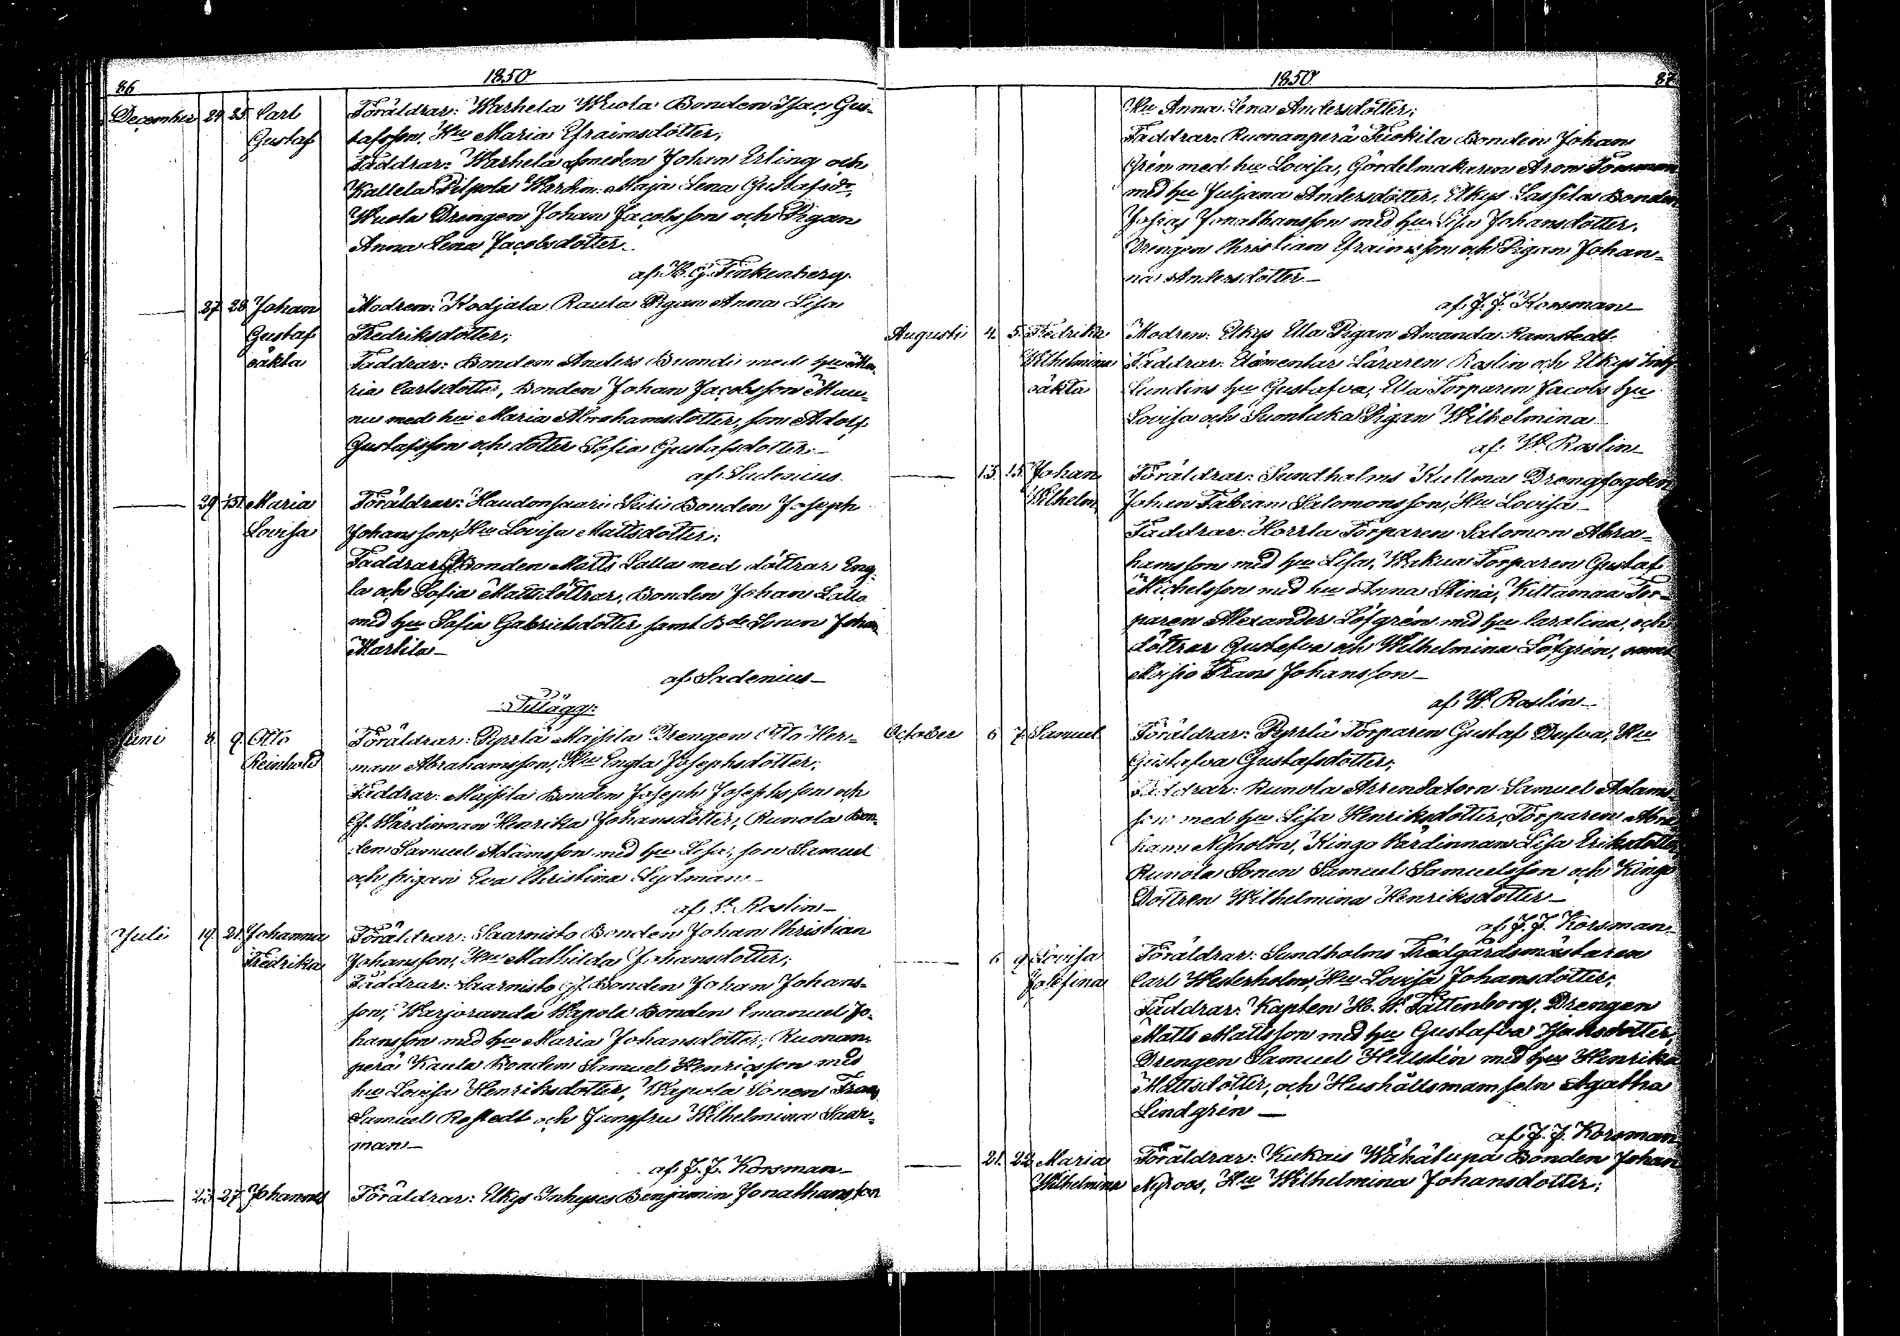 86
1850
December 24. 25. Carl Föräldrar: Warhela Wiola Bonden Isac Gus-
Gustaf tafsson, Hu Maria Efraimsdotter;
Faddrar: Warhela Smeden Johan Erling och
Kallela Pilpola Maja Lena Gustafsdr.
Drengen Johan Jacobsson och Pigan
Anna Lena Jacobsdotter.
af: Finkenberg.
27. 28. Johan Modren: Kodjala Raula Pigan Anna Lisa
Gustaf Fredriksdotter;
oäkta Faddrar: Bonden Anders Buondi med hu Ma-
ria Carlsdotter, Bonden Johan Jacobsson
med hu Maria Abrahamsdotter, son Adolf
Gustafsson och dotter Sofia Gustafsdotter.
af: Sadenius.
29. 31. Maria Föräldrar: Haudonsaari Bonden Joseph
Lovisa Johansson, Hu Lovisa Mattsdotter;
Faddrar: Bonden Matts Lalla med döttrar Eng-
la och Sofia Mattsdöttrar, Bonden Johan
med hu Sofia Gabrielsdotter samt Bde Sonen Johan
Markila
af Sadenius
Tillägg:
Juni 8. 9. Otto Föräldrar: Pyrrlä Maisila Drengen Otto Her-
Reinhold man Abrahamsson, Hu Engla Josephsdotter;
Faddrar: Maisila Bonden Joseph Josephsson och
Gf. Wärdinnan Henrika Johansdotter, Runola Bon-
den Samuel Adamsson med hu Lisa, son Samuel
och pigan Eva Christina
af Roslin
Juli 19. 21. Johanna Föräldrar: Saarnisto Bonden Johan Christian
Fredrika Johansson, Hu Mathilda Johansdotter;
Faddrar: Saarnisto gf. Bonden Johan Johans-
son, Warjoranda Wapola Bonden Emanuel Jo-
hansson med hu Maria Johansdotter, Ruonan-
perä Kaula Bonden Samuel Henricsson med
hu Lovisa Henriksdotter, Sonen Frans
Samuel och Jungfru Wilhelmina Saar-
man
af J. J. Korsman
23. 27. Johannes Föräldrar: Elkys Inhyses Benjamin Jonathansson
1850
87
Hu Anna Lena Andersdotter;
Faddrar: Ruonanperä Bonden Johan
Grén med hu Lovisa, Gördelmakaren Aron
med hu Juliana Andersdotter, Elkys Lassila Bonden
Josias Jonathansson med hu Lisa Johansdotter.
Drengen Christian Efraimsson och Pigan Johan-
na Andersdotter
af J. J. Korsman
Augusti 4. 5. Fredrika Modren: Elkys Ella Pigan Amanda Ramstedt.
Wilhelmina Faddrar: Elementar Läraren Roslin och Elkys
oäkta Lundins hu Gustafva, Ella Torparen Jacobs hu
Lovisa och Suontaka Pigan Wilhelmina
af: W. Roslin
13. 15. Johan Föräldrar: Sundholms Kultma Drengfogden
Wilhelm Johan Fabian Salomonsson, Hu Lovisa
Faddrar: Horrla Torparen Salomon Abra-
hamsson med hu Lisa, Torparen Gustaf
Michelsson med hu Anna Stina, Kittamaa Tor-
paren Alexander Löfgrén med hu Carolina, och
döttrar Gustafva och Wilhelmina Löfgrén, samt
Moisio Frans Johansson
af W. Roslin
October 6 7. Samuel Föräldrar: Pyrrlä Torparen Gustaf Dufva, Hu
Gustafva Gustafsdotter;
Faddrar: Runola Arrendatorn Samuel Adams-
son med hu Lisa Henriksdotter, Torparen Abra-
ham Nyholm, Kingo Värdinnan Lisa Eriksdotter
Runola Sonen Samuel Samuelsson och Kingo
Dottren Wilhelmina Henriksdotter
af J. J. Korsman.
6 9. Lovisa Föräldrar: Sundholms Trädgårdsmästaren
Josefina Carl Westerholm, Hu Lovisa Johansdotter;
Faddrar: Kapten H. W. Tattenborg, Drengen
Matts Mattsson med hu Gustafva
Drengen Samuel Hellstén med hu Henrika
Mattsdotter, och Hushållsmamseln Agatha
Lindgrén
af J. J. Korsman
21. 22. Maria Föräldrar: Kukais Wähälupa Bonden Johan
Wilhelmina Nyroos, Hu Wilhelmina Johansdotter;